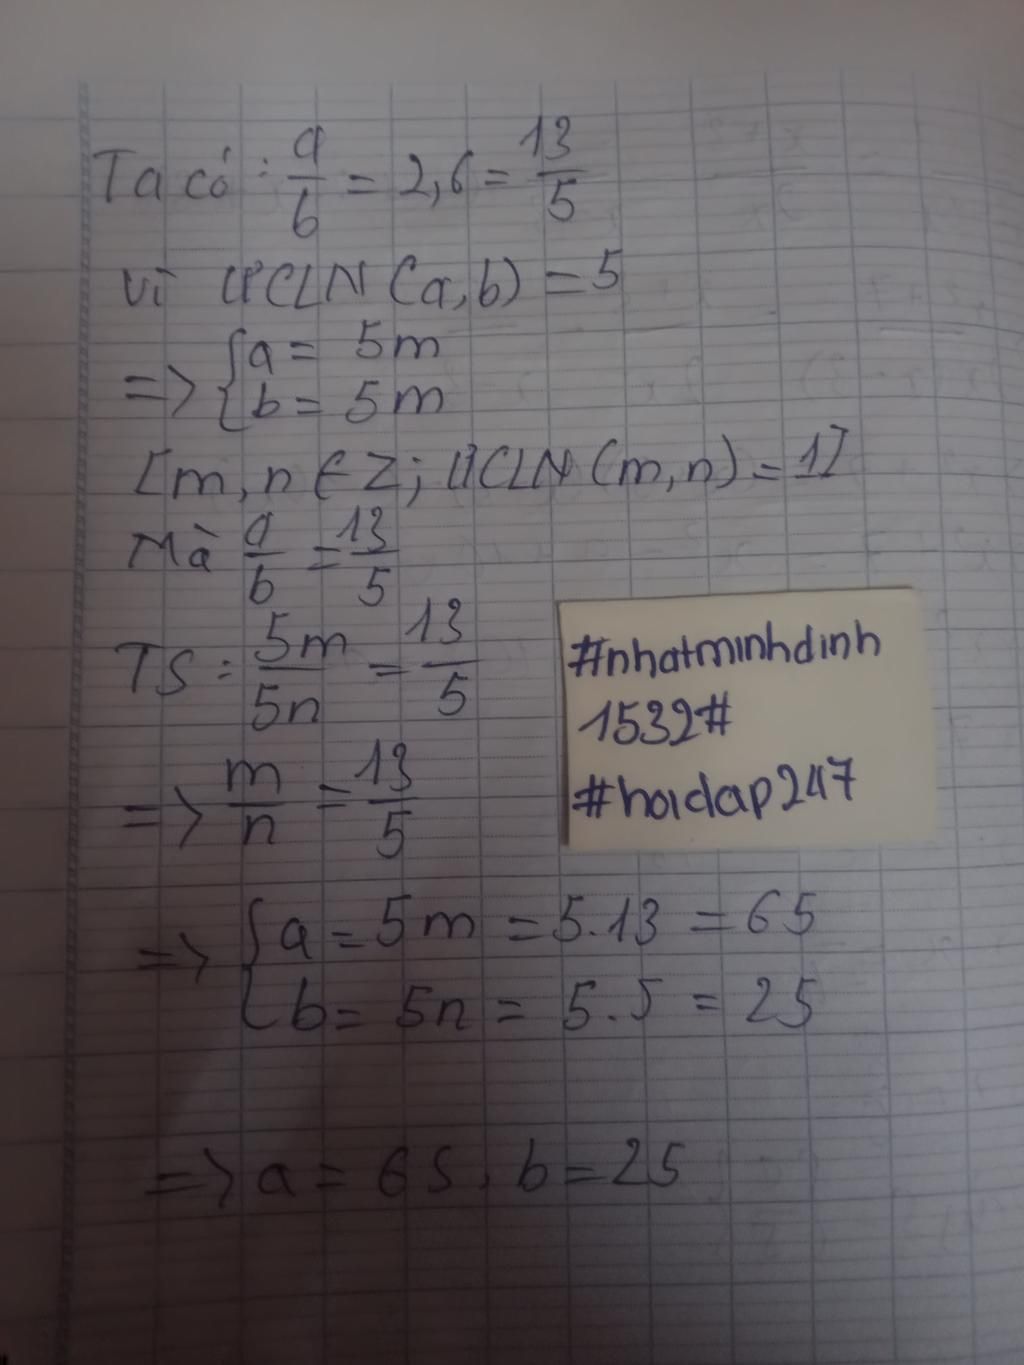 Ta có: a/b = 2,6 = 13/5
Vì ƯCLN (a,b) = 5
=> { a = 5m
b = 5m
[m, n ∈ Z; ƯCLN (m, n) = 1]
Mà a/b = 13/5
TS: 5m/5n = 13/5
=> m/n = 13/5
=> { a = 5m = 5.13 = 65
b = 5n = 5.5 = 25
=> a = 65, b = 25
#nhatminhdinh
1532#
#hoidap247